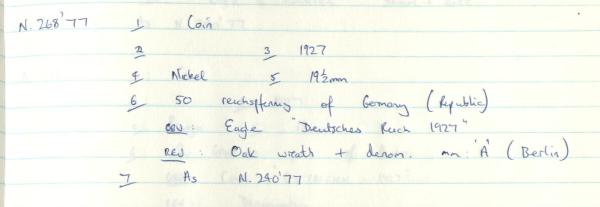 N. 268'77 1 Coin
2 3 1927
4 Nickel 5 19½mm
6 50 reichspfennig of Germany (Republic)
OBV: Eagle "Deutsches Reich 1927"
REV: Oak wreath + denom. mm: 'A' (Berlin)
7 As N. 240'77